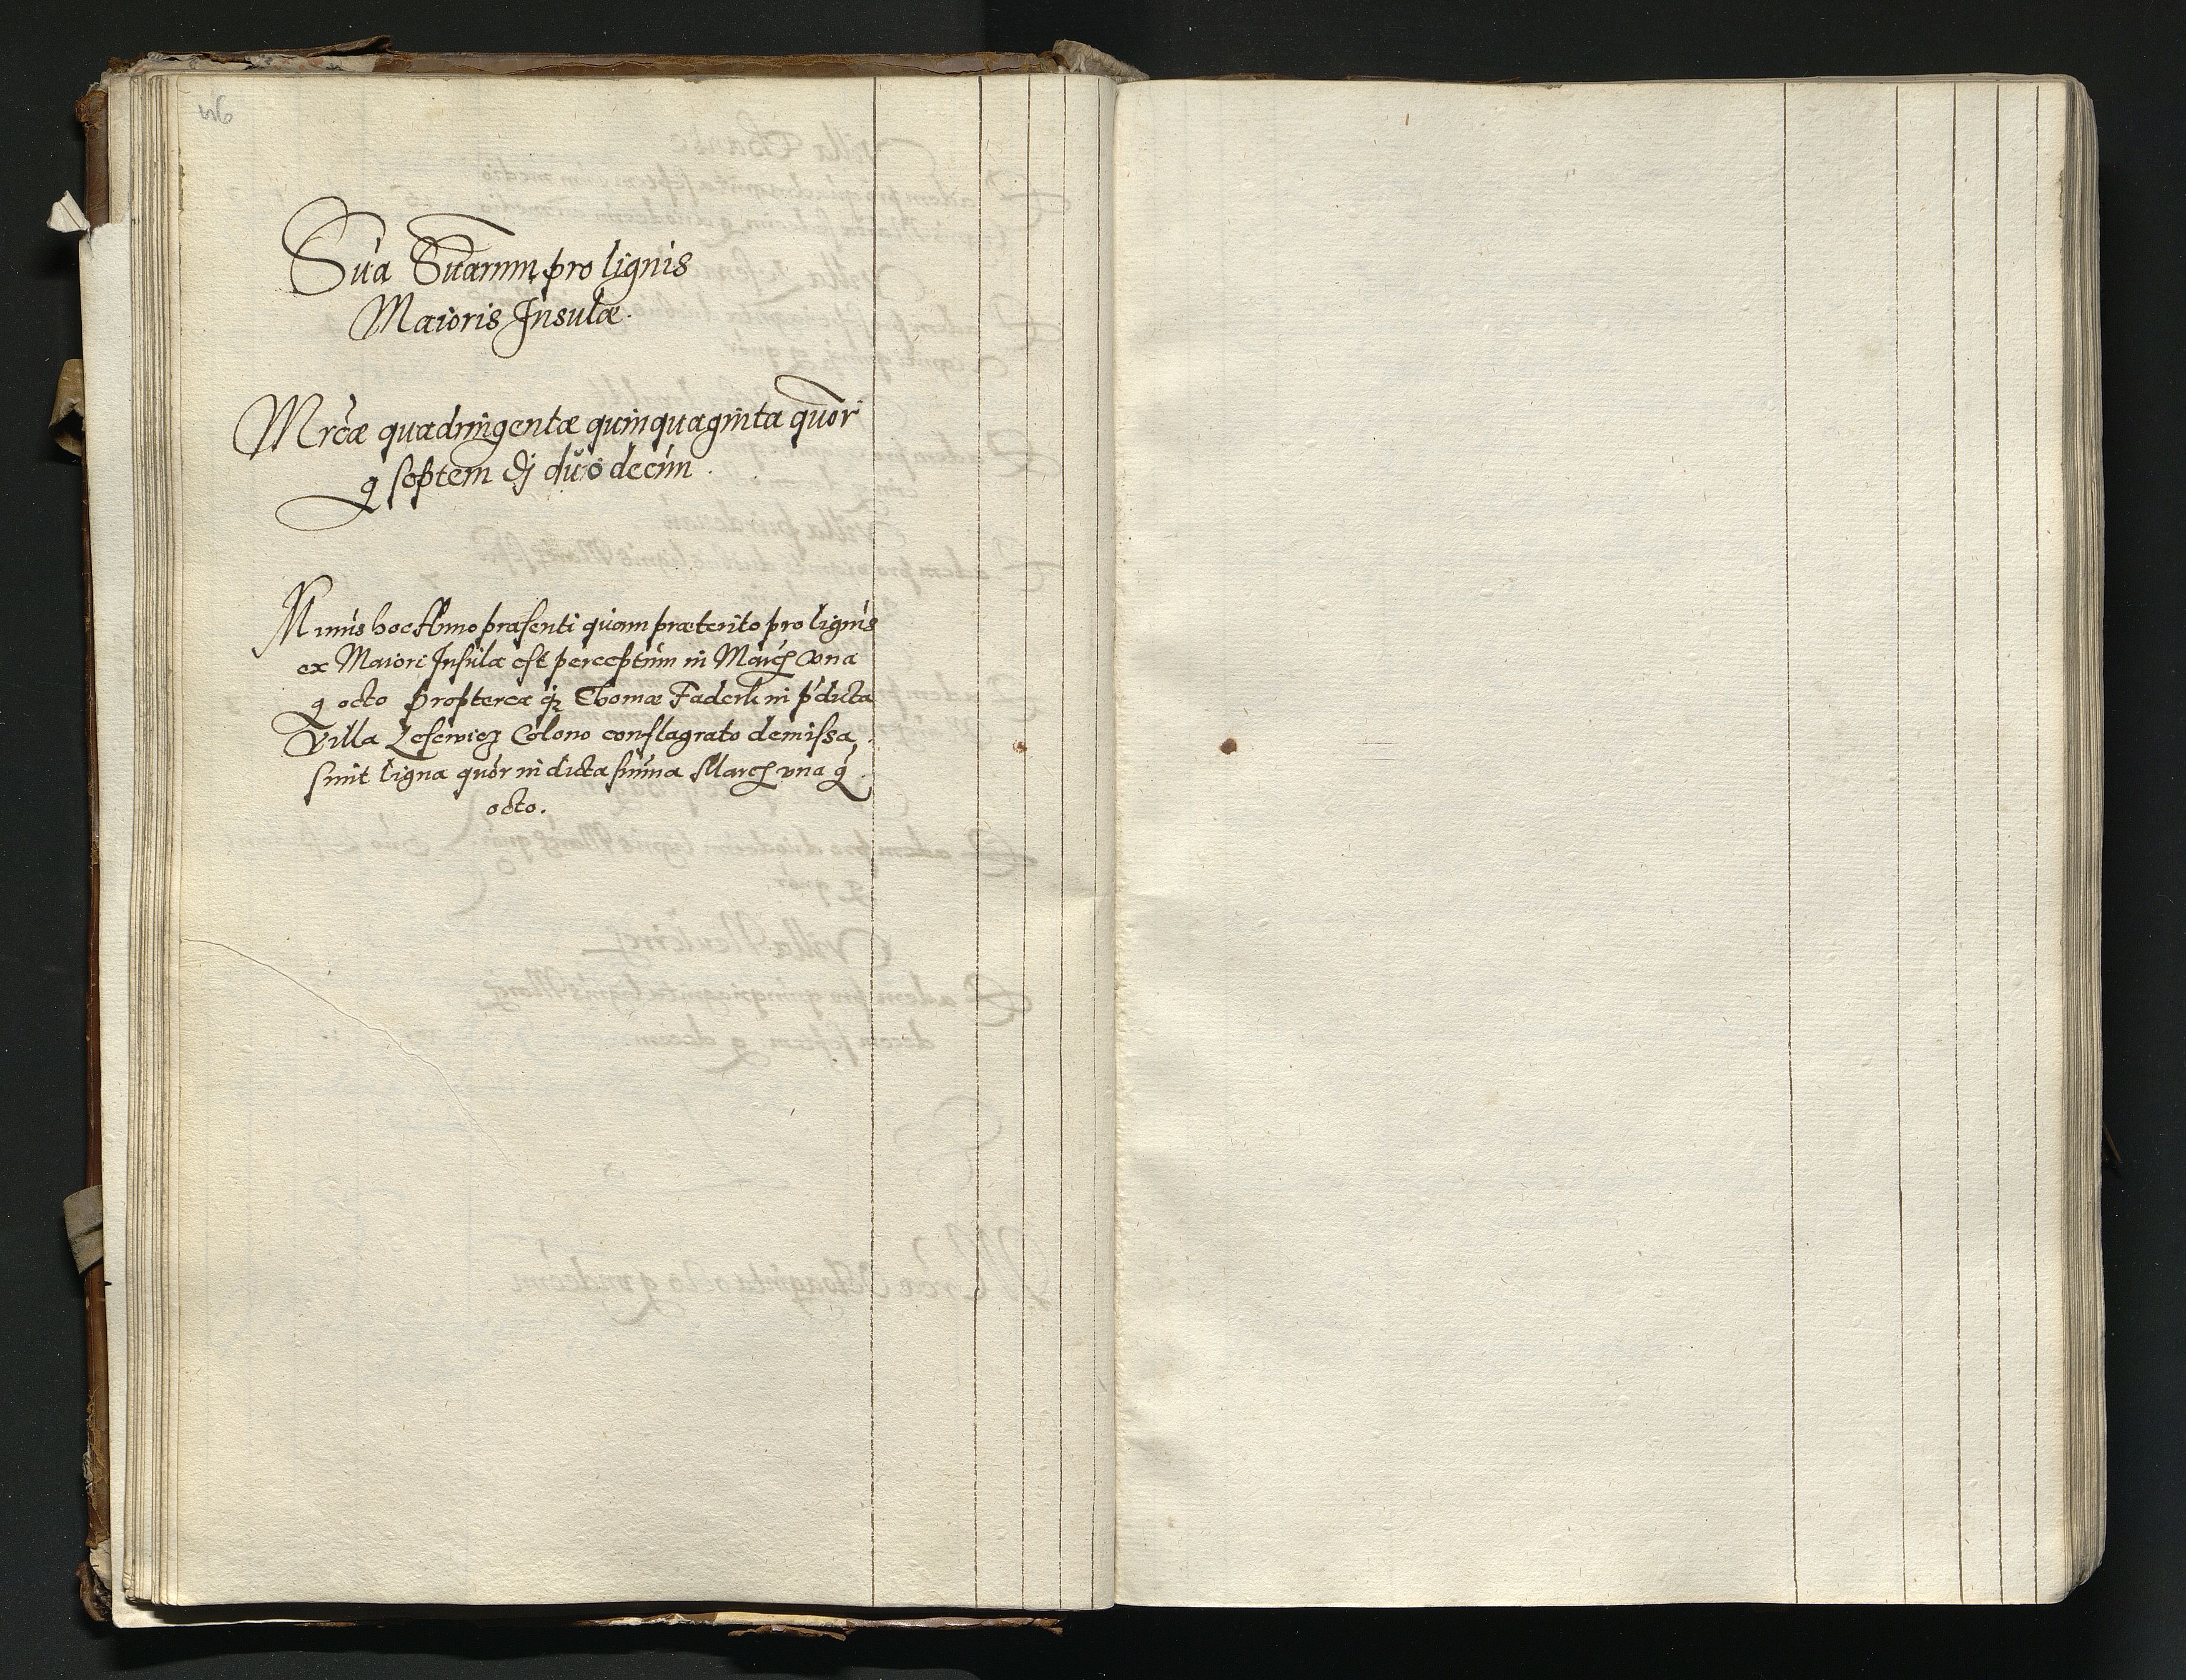 Sūa Sūarum pro lignis
Maioris Insulæ.
Mrcæ quadringentæ quinquaginta quor
g septem ðj duodecim.
Minus hoc Anno præsenti quam præterito pro lignis
ex Maiori Insula est perceptum in Marcis vna
g octo Propterea qz Thomæ Faderli in pdicta
Villa Lesewicz Colono conflagrato demissa
sunt ligna quor in dicta summa Marcis vna g
octo.